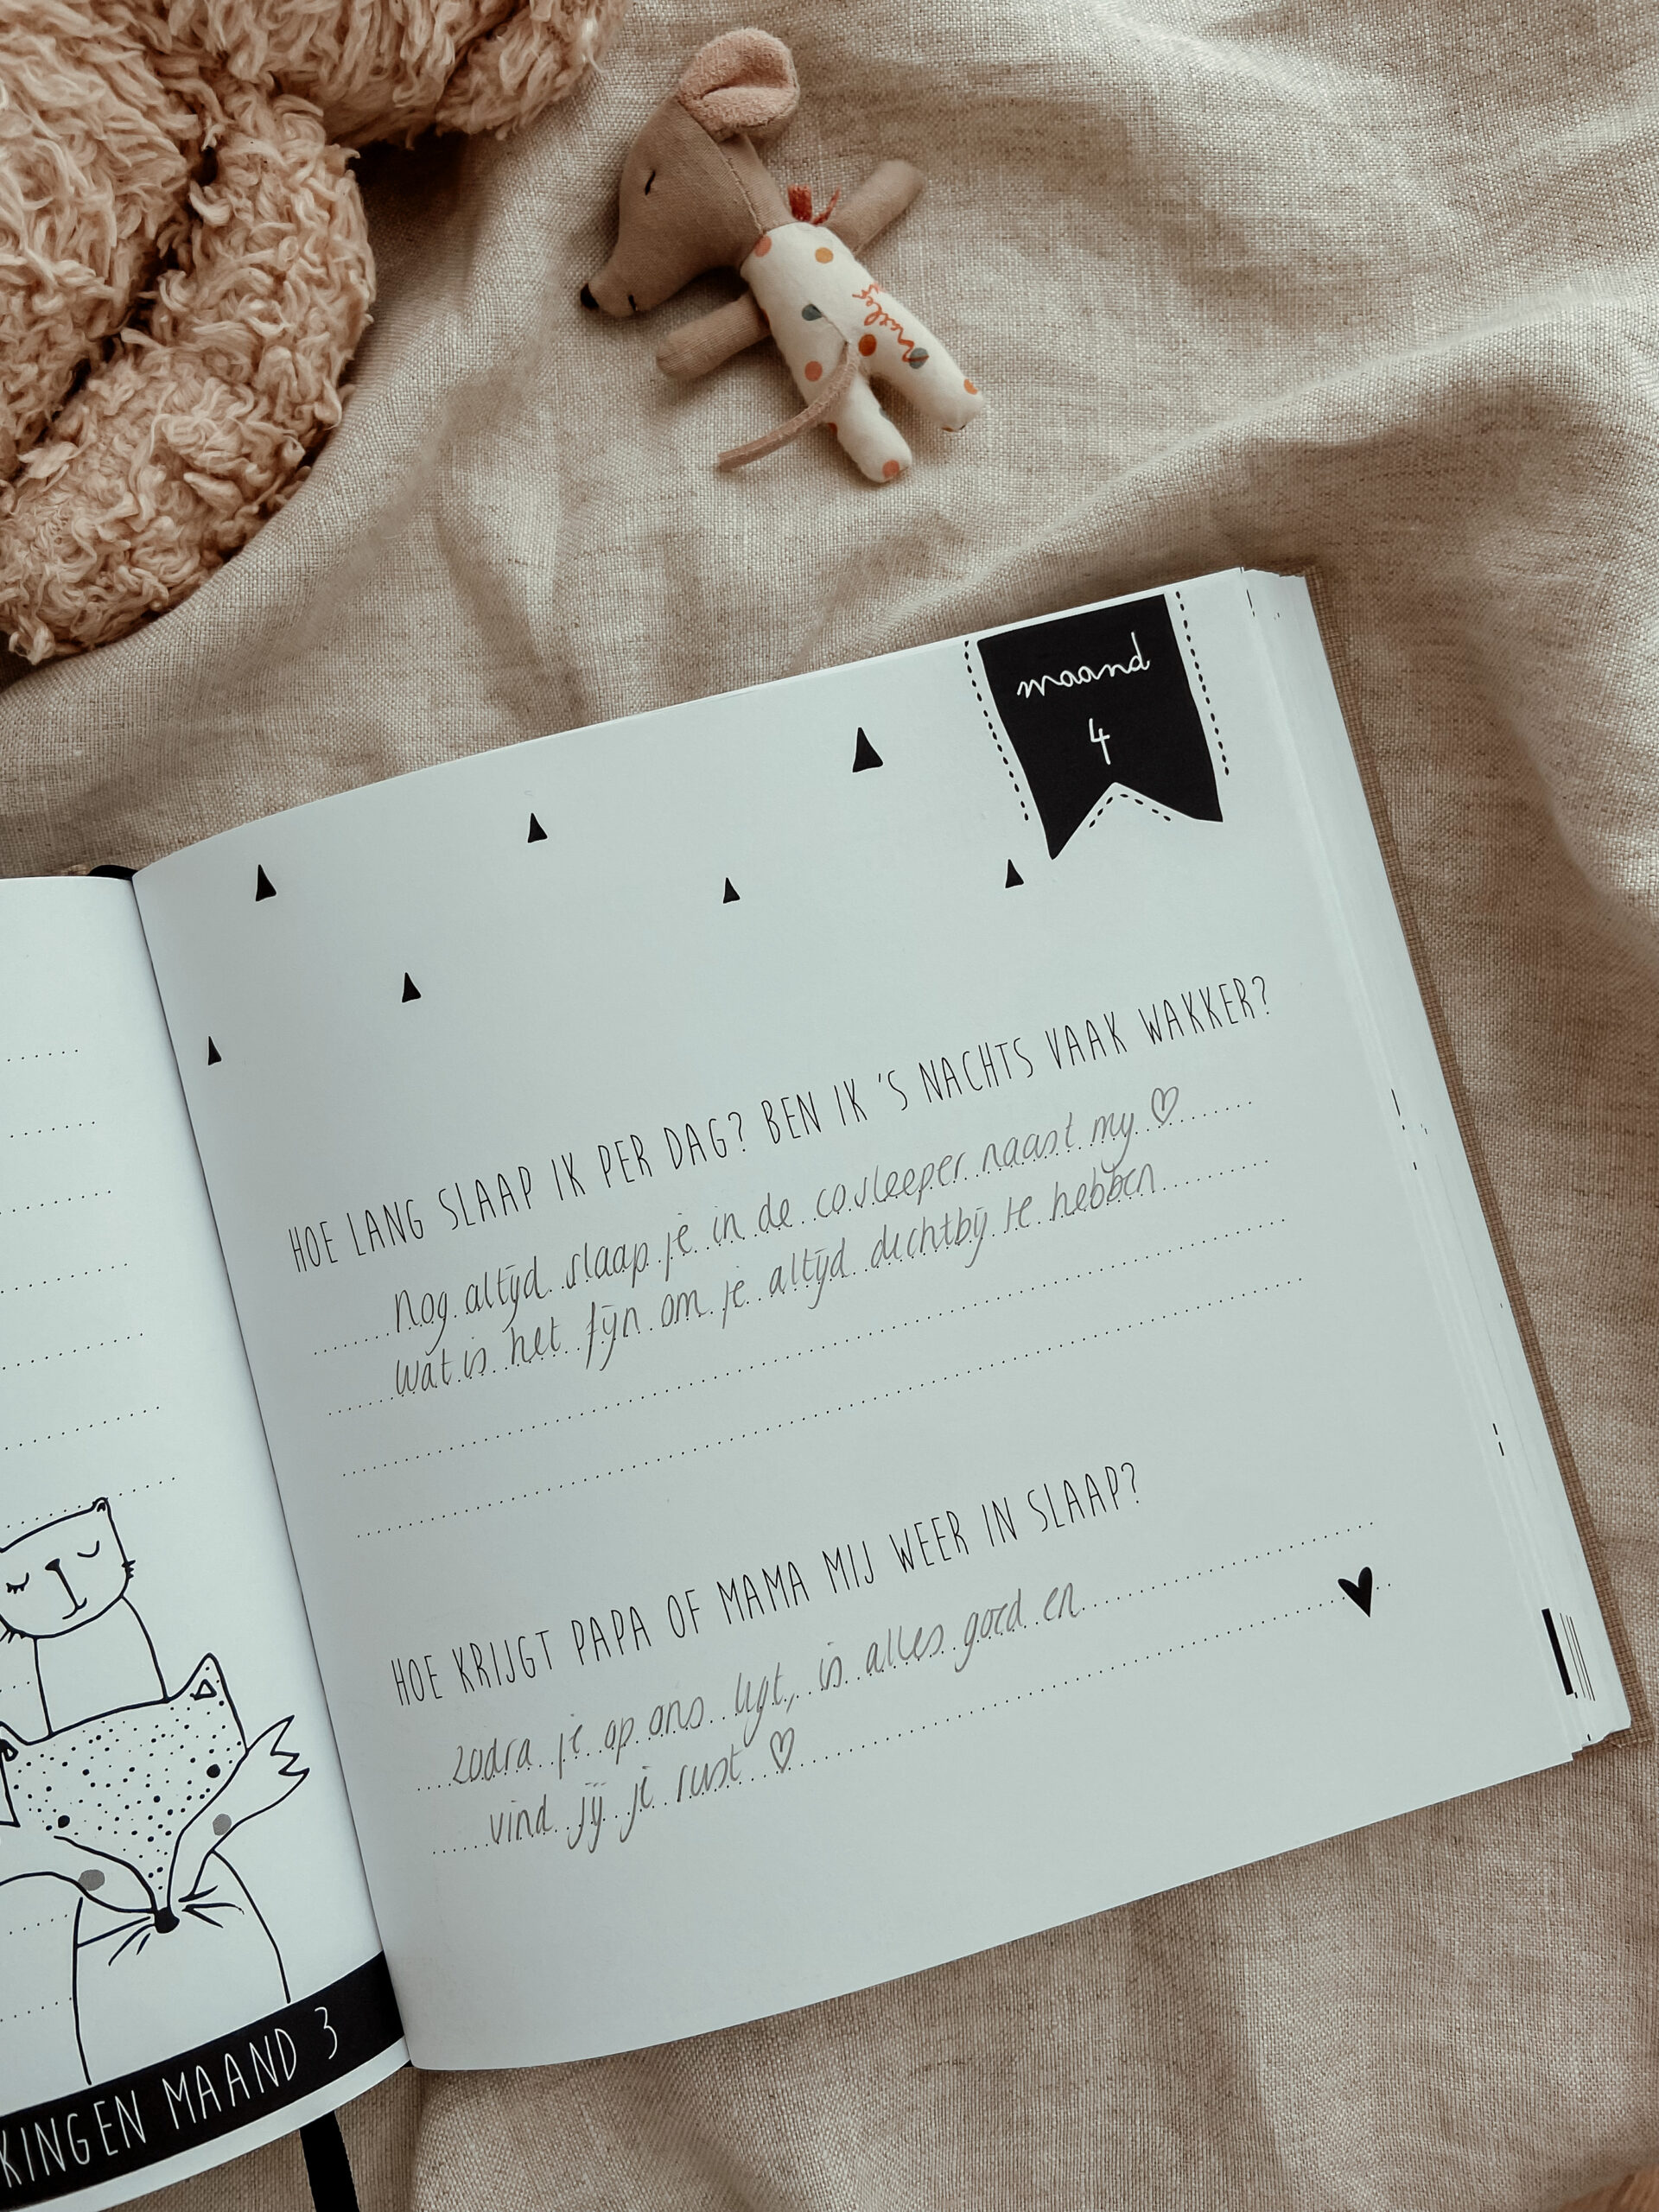 maand
4
HOE LANG SLAAP IK PER DAG? BEN IK 'S NACHTS VAAK WAKKER?
Nog altijd slaap je in de cosleeper naast mij ♡
wat is het fijn om je altijd dichtbij te hebben
HOE KRIJGT PAPA OF MAMA MIJ WEER IN SLAAP?
zodra je op ons ligt, is alles goed en
vind jij je rust ♡
KINGEN MAAND 3